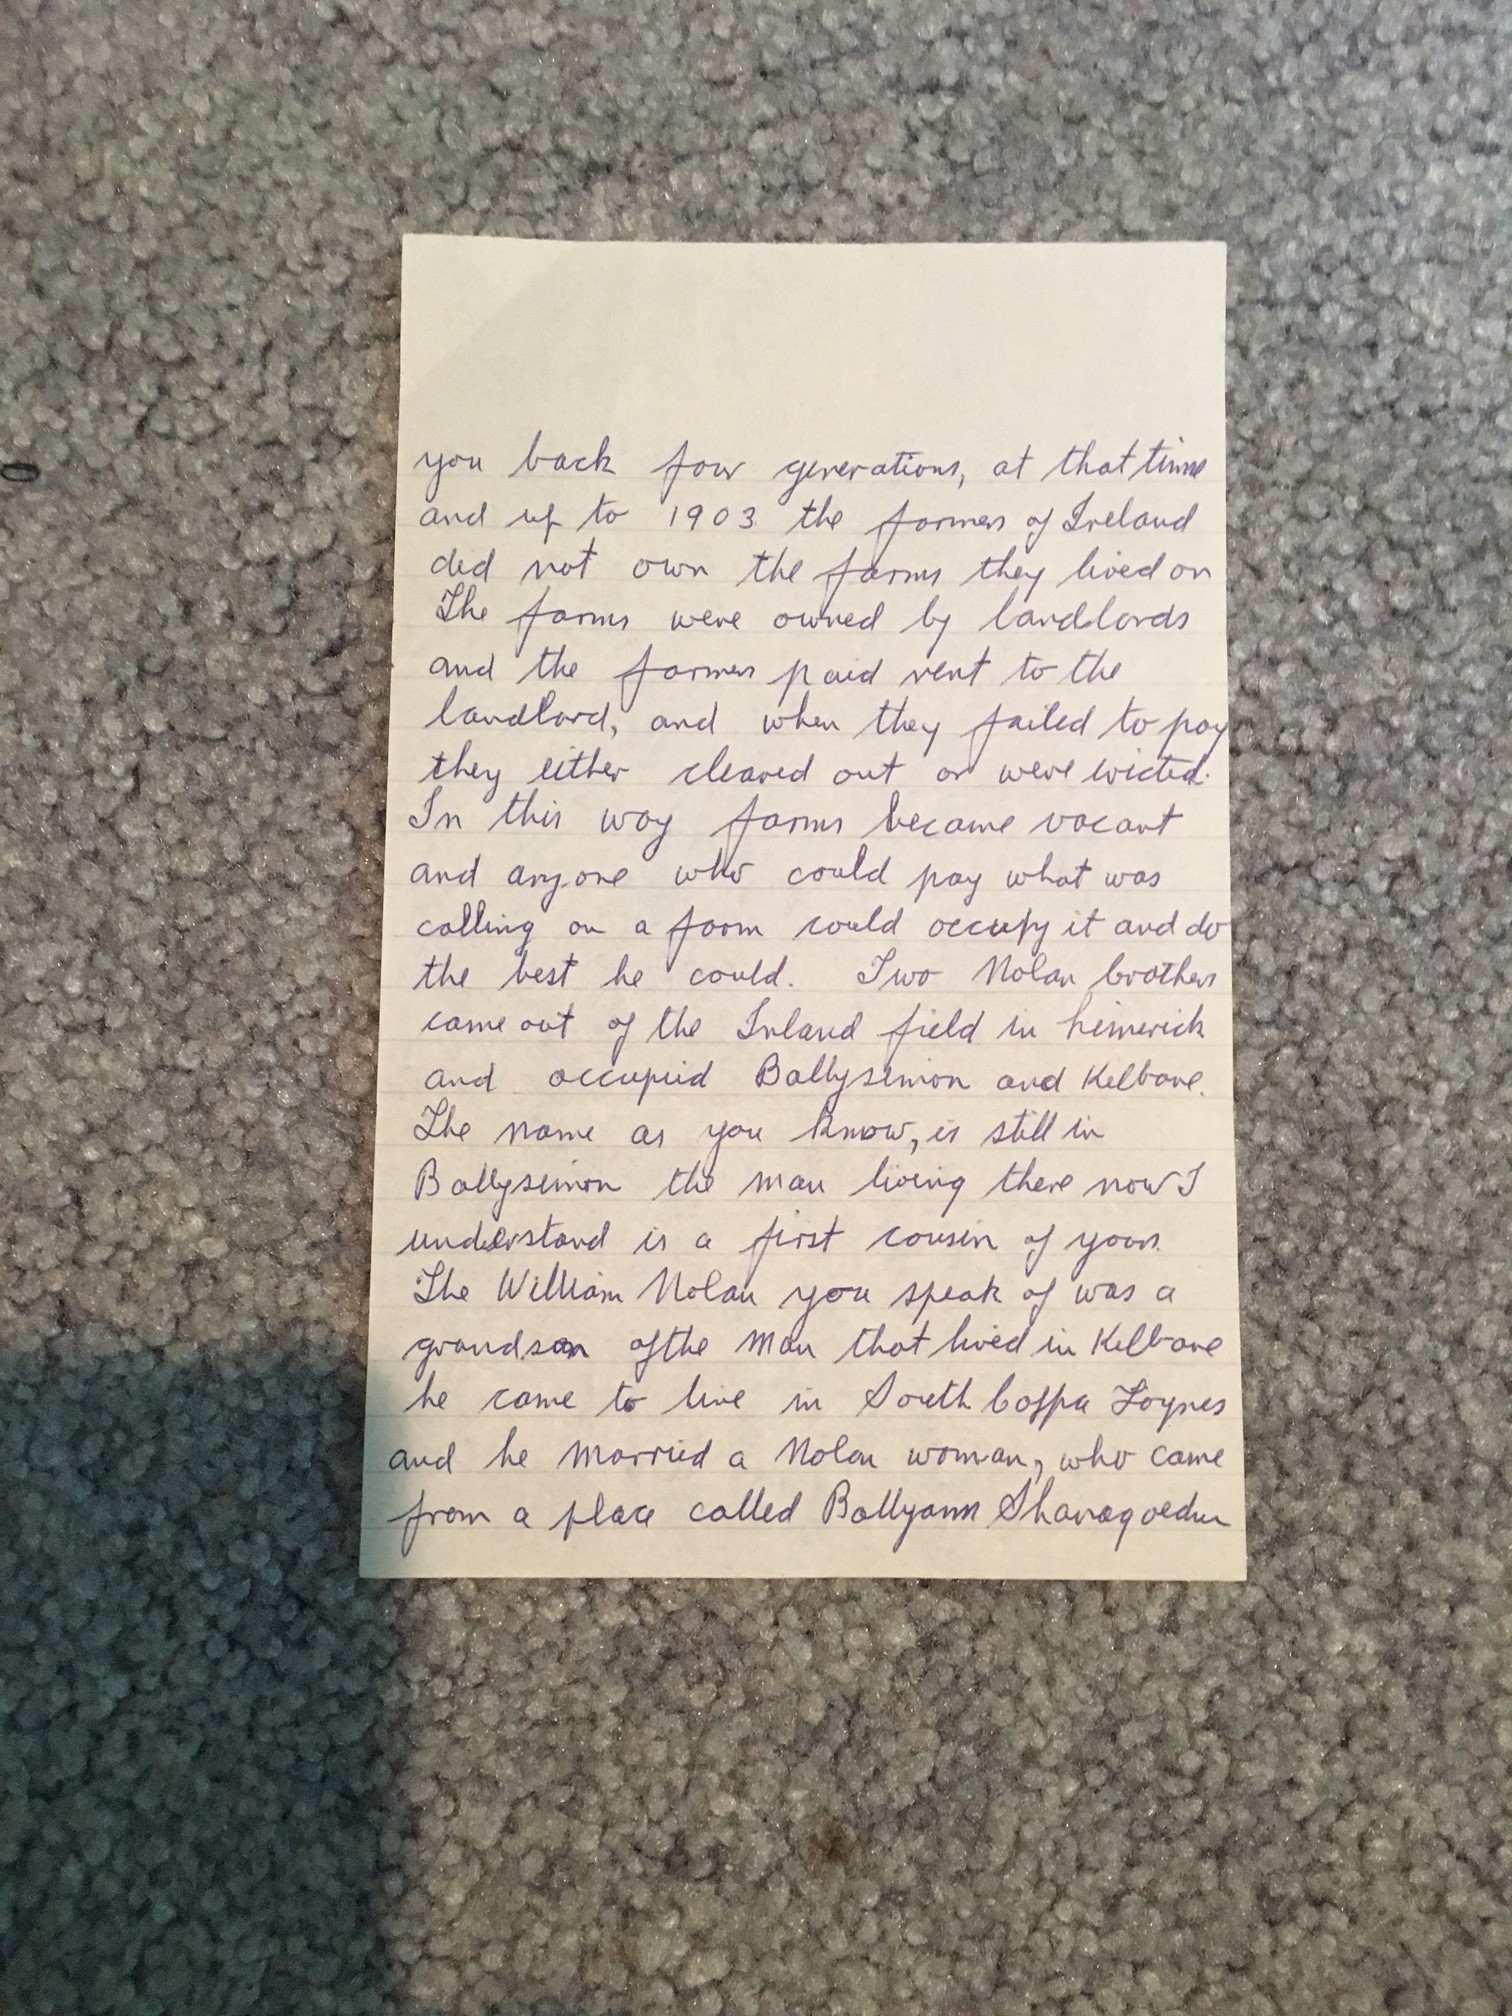 you back four generations, at that time
and up to 1903 the farmers of Ireland
did not own the farms they lived on
The farms were owned by landlords
and the farmers paid rent to the
landlord, and when they failed to pay
they either cleared out or were evicted.
In this way farms became vacant
and anyone who could pay what was
calling on a farm could occupy it and do
the best he could. Two Nolan brothers
came out of the Inland field in Limerick
and occupied Ballysimon and Kilbane.
The name as you know, is still in
Ballysimon the man living there now I
understand is a first cousin of yours.
The William Nolan you speak of was a
grandson of the man that lived in Kilbane
he came to live in South Cappa Foynes
and he married a Nolan woman, who came
from a place called Ballyann